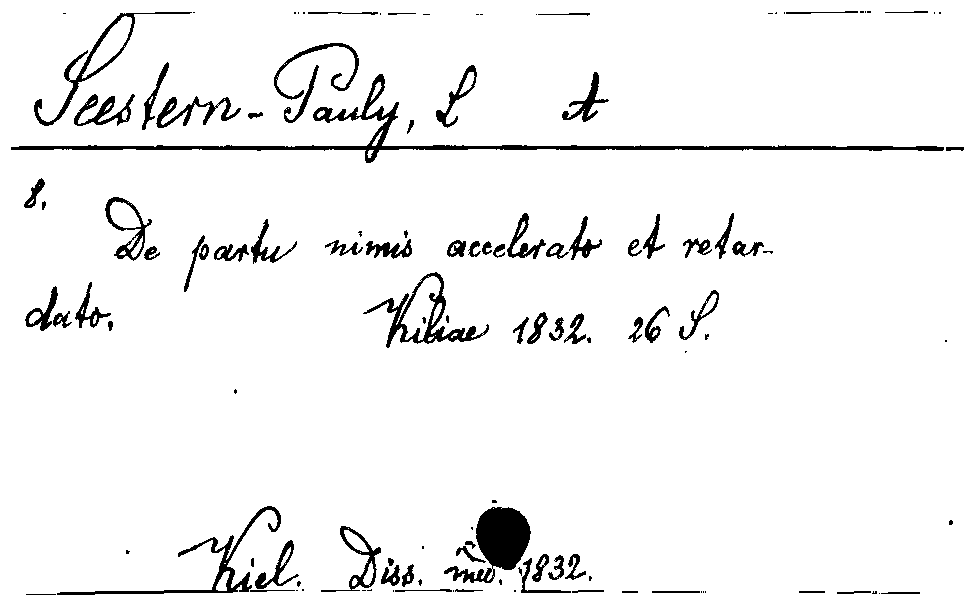 Seestern-Pauly, L A
8.
De partu nimis accelerato et retar-
dato. Kiliae 1832. 26 S.
Kiel. Diss. med. 1832.